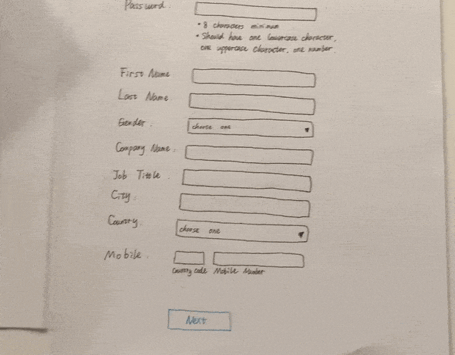 Password.
• 8 characters minimum
• Should have one lowercase character,
one uppercase character, one number.
First Name
Last Name
Gender.
choose one
Company Name.
Job Tittle.
City.
Country.
choose one
Mobile.
Country code Mobile Number
NEXT